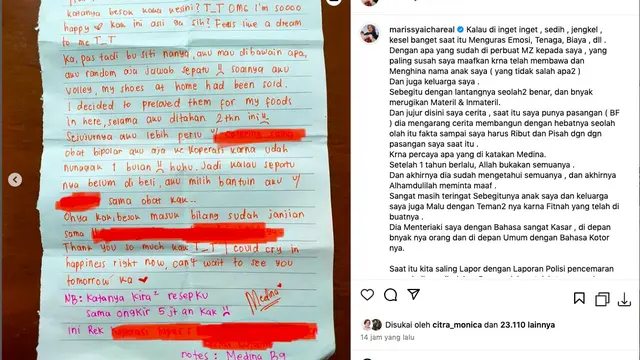 katanya besok kaka kesini? T_T OMG I'm SOOO
happy ❤ Kak ini asli ga sih? Feels live a dream
to me T_T
Ka, pas tadi bu siti nanya, aku mau dibawain apa,
aku random aja jawab sepatu soalnya aku
volley, my shoes at home had been sold.
I decided to preloved them for my foods
in here, selama aku ditahan 2 thn ini
Sejujurnya aku lebih perlu
obat bipolar aku aja ke koperasi karna udah
nunggak 1 bulan huhu. Jadi kalau sepatu
nya belum di beli, aku milih bantuin aku u/
sama obat kak..
Ohya kak, besok masuk bilang sudah janjian
sama
Thank you so much kak T_T I could cry in
happiness right now, can't wait to see you
tomorrow ka ❤
NB: Katanya kira² resepku
sama ongkir 5 jt an kak
Medina
ini Rek
notes: Medina Bg
marissyaichareal Kalau di inget inget , sedih , jengkel ,
kesel banget saat itu Menguras Emosi, Tenaga, Biaya , dll .
Dengan apa yang sudah di perbuat MZ kepada saya , yang
paling susah saya maafkan krna telah membawa dan
Menghina nama anak saya ( yang tidak salah apa2 )
Dan juga keluarga saya .
Sebegitu dengan lantangnya seolah2 benar, dan bnyak
merugikan Materil & Inmateril.
Dan jujur disini saya cerita , saat itu saya punya pasangan ( BF
) dia mengarang cerita membangun dengan hebatnya seolah
olah itu fakta sampai saya harus Ribut dan Pisah dgn dgn
pasangan saya saat itu .
Krna percaya apa yang di katakan Medina.
Setelah 1 tahun berlalu, Allah bukakan semuanya .
Dan akhirnya dia sudah mengetahui semuanya , dan akhirnya
Alhamdulilah meminta maaf .
Sangat masih teringat Sebegitunya anak saya dan keluarga
saya juga Malu dengan Teman2 nya karna Fitnah yang telah di
buatnya .
Dia Menteriaki saya dengan Bahasa sangat Kasar , di depan
bnyak nya orang dan di depan Umum dengan Bahasa Kotor
nya.
Saat itu kita saling Lapor dengan Laporan Polisi pencemaran
Disukai oleh citra_monica dan 23.110 lainnya
14 jam yang lalu